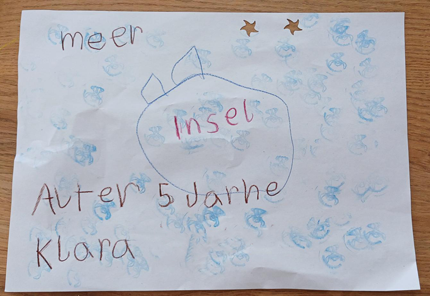 meer
Insel
Alter 5 Jarhe
Klara